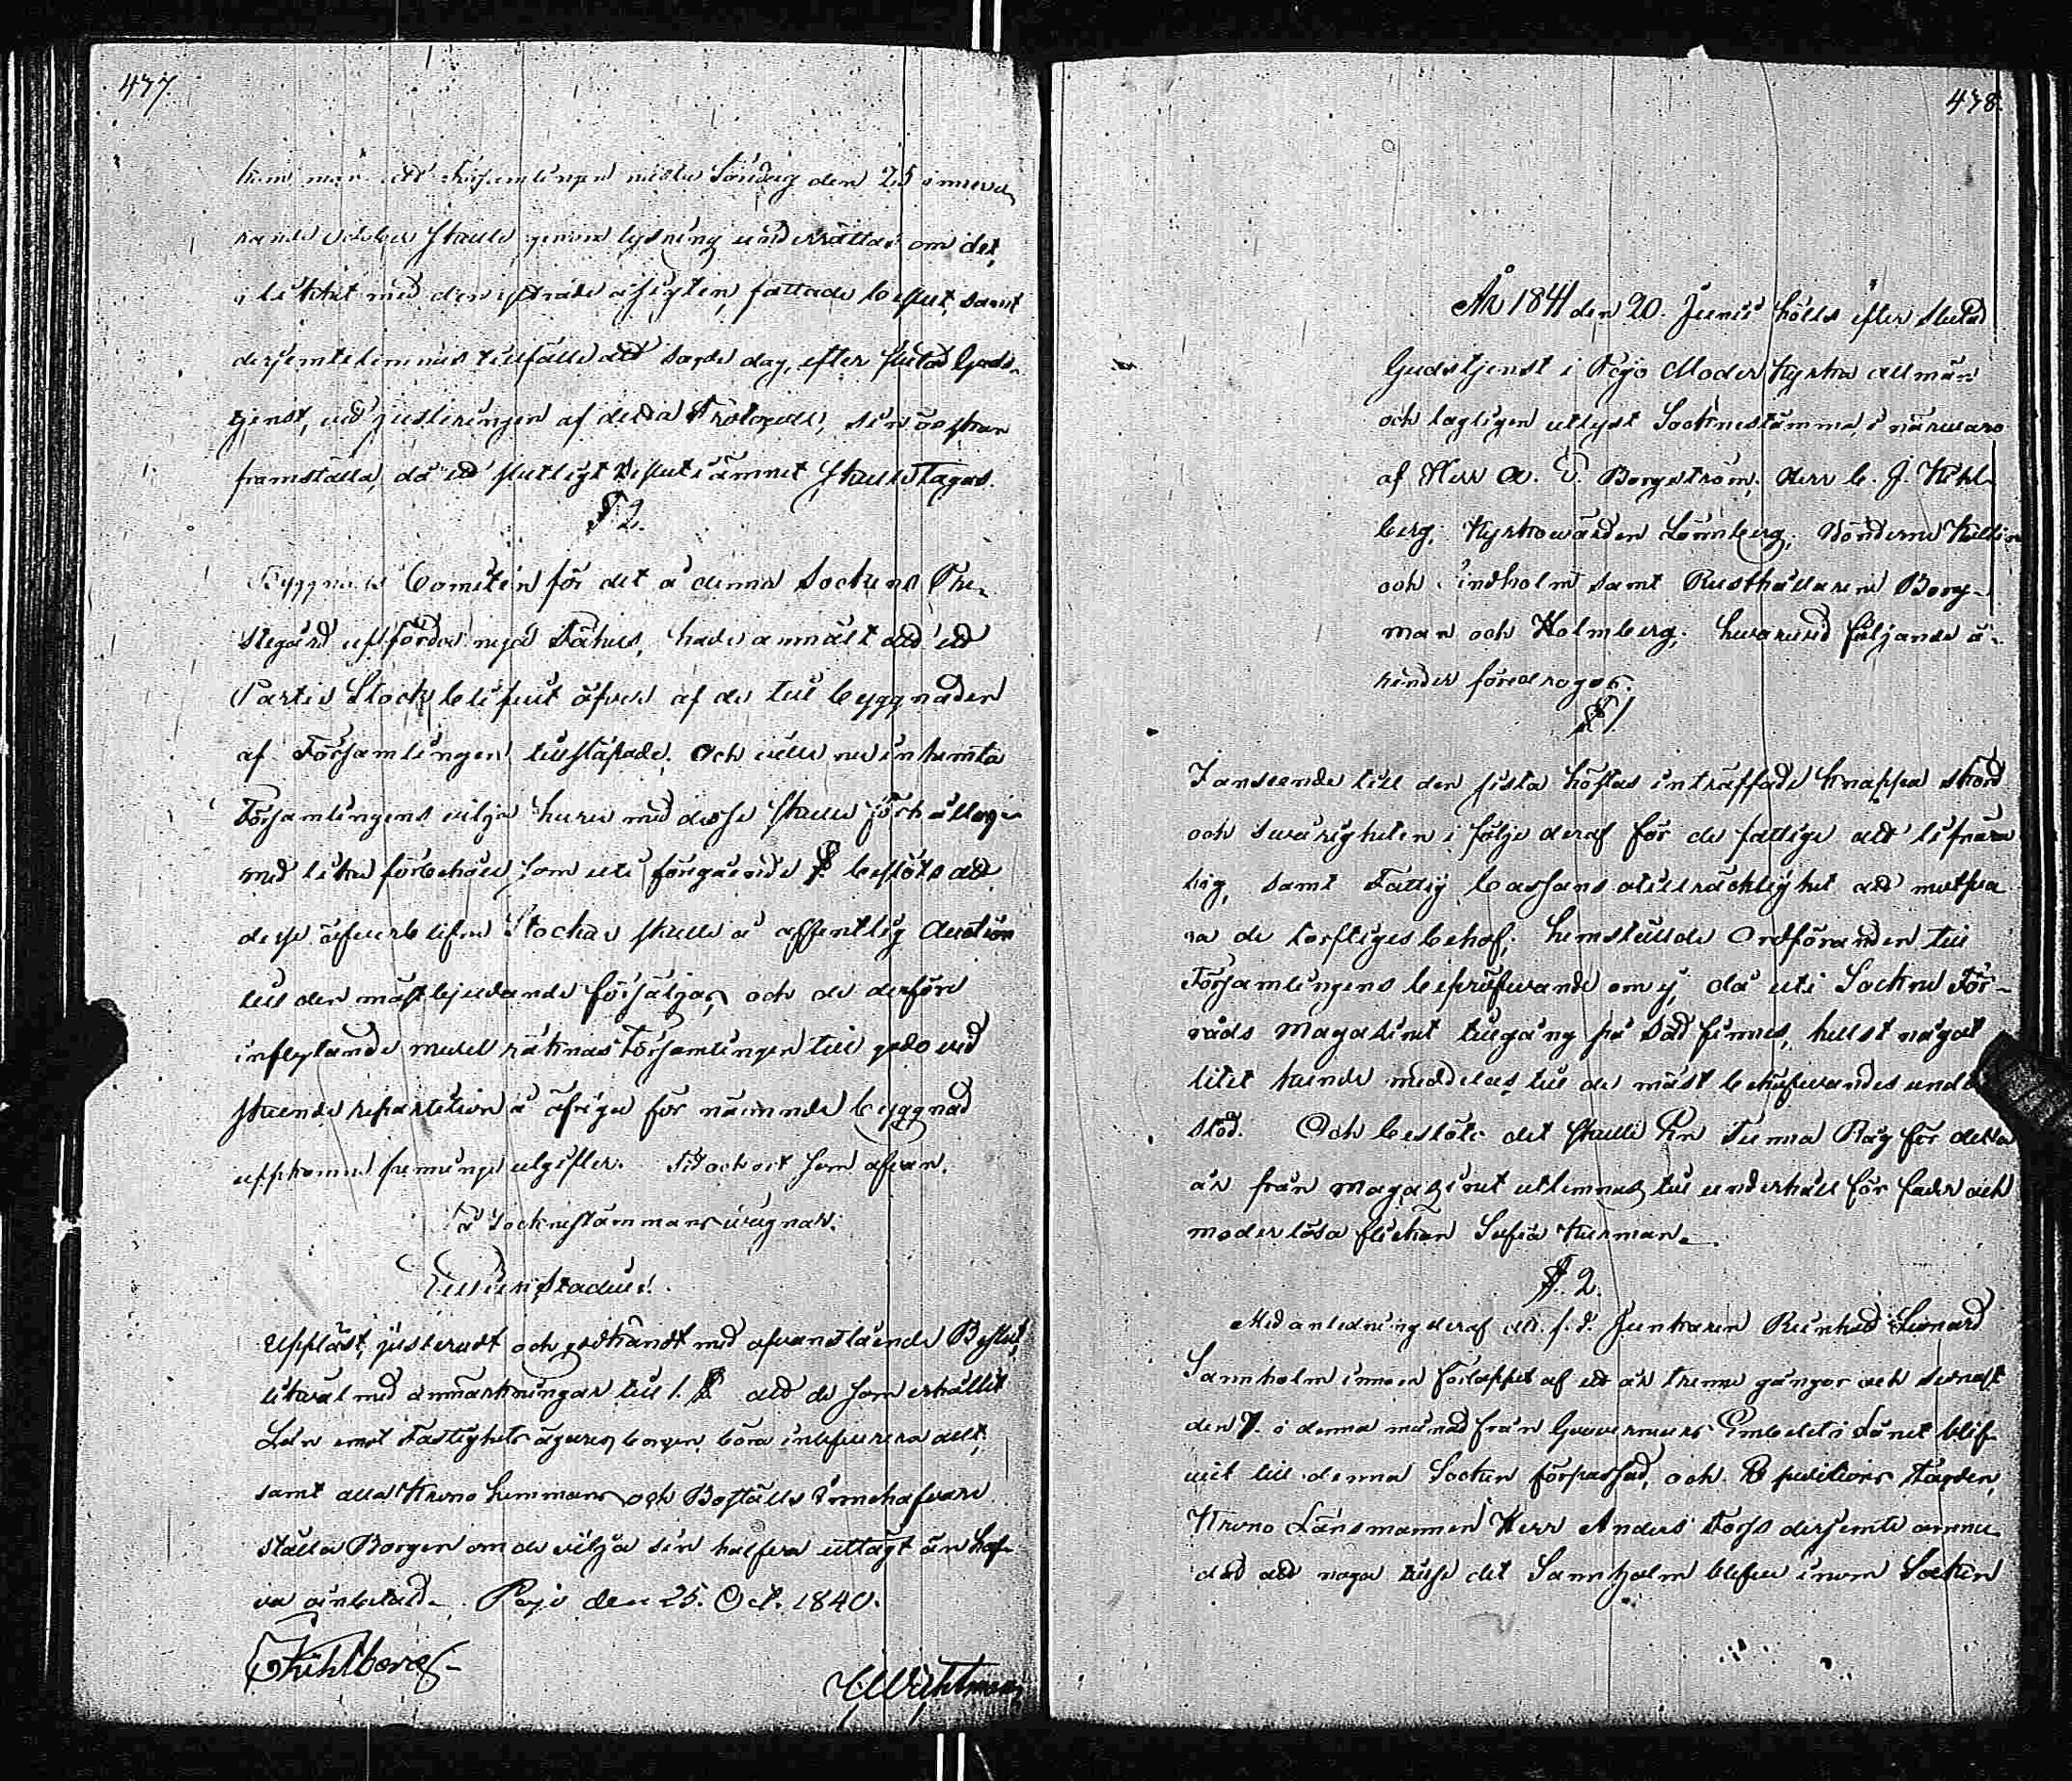 477.
man att Församlingen nästa Söndag den 25 inneva
rande October skulle genom lysning underrättas om det,
i likhet med den yttrade åsigten, fattade beslut, samt
derjemte lemnas tillfälle att sagde dag, efter slutad Guds-
tjenst, vid justeringen af detta Protocoll, sin önskan
framställa, då ett slutligt beslut i ämnet skulle tagas.
§ 2.
Byggnads Comitéen för det å denna Sockens Pre-
stegård uppförda nya Fähus, hade anmält att ett
Partie Stock blifvit öfver af de till byggnaden
af Församlingen tillsläpade, och ville nu inhemta
Församlingens vilja huru med desse skulle förhållas
med lika förbehåll som uti föregående § beslöts att
desse öfverblifne Stockar skulle å offentlig Auction
till den mäst bjudande försäljas, och de derföre
inflytande medel räknas Församlingen till godo vid
skeende repartition å öfrige för nämnde byggnad
uppkomne pennings utgifter. Tid och ort som ofvan.
På Sockenstämmans vägnar:
Uppläst, justeradt och godkändt med ofvanstående Beslut,
likväl med anmärkningar till 1. § att de som erhållit
Lån emot Fastighets ägares borgen böra inleverera allt,
samt alla Krono hemmans och Boställs Innehafvare
ställa Borgen om de vilja sin halfva uttagt än haf-
va oinbetald. Pojo den 25. Oct. 1840.
CJKihlberg
478.
År 1841 den 20. Junii hölls efter slutad
Gudstjenst i Pojo Moder Kyrka allmän
och lagligen utlyst Sockenstämma, i närvaro
af Herr A. E. Borgström, Herr C. J. Kihl-
berg, Kyrkowärden Lönnberg, Bönderne
och Lindholm samt Rusthållarene Borg-
man och Holmberg; hvarvid följande ä-
render föredrogos.
§ 1.
I anseende till den sista höstas inträffade knappa skörd
och svårigheten i följe deraf för de fattige att lifnära
sig, samt Fattig Cassans otillräcklighet att motsva
ra de torftiges behof, hemställde Ordföranden till
Församlingens bepröfvande om ej, då uti Sockne För-
råds Magasinet tillgång på Säd finnes, hellst något
litet kunde meddelas till de mäst behöfvandes under
stöd. Och beslöts det skulle En Tunna Råg för detta
år från Magazinet utlemnas till underhåll för fader och
moderlösa flickan Sofia
§ 2.
Med anledning deraf att f. d. Junkaren Reinhold Leonard
Sannholm innom förloppet af ett år trenne gångor och sednast
den 7. i denna månad från Gouverneurs Embetet i Länet blif-
vit till denna Socken förpassad, och Expeditions Vogden,
Krono Länsmannen Herr Anders Forss derjemte anmo-
dad att noga tillse det Sannholm blefve inom Socken